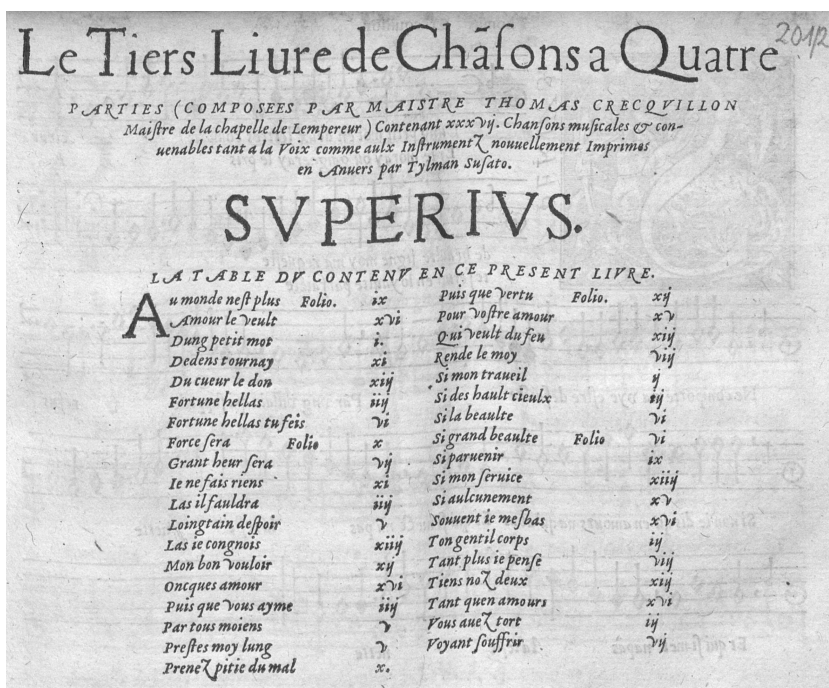 Le Tiers Liure de Chãſons a Quatre
2012
PARTIES (COMPOSEES PAR MAISTRE THOMAS CRECQVILLON
Maiſtre de la chapelle de Lempereur) Contenant xxxvij. Chanſons muſicales & con-
uenables tant a la Voix comme aulx Inſtrumentz nouuellement Imprimes
en Anuers par Tylman Suſato.
SVPERIVS.
LA TABLE DV CONTENV EN CE PRESENT LIVRE.
Au monde neſt plus Folio. ix
Amour le veult xvi
Dung petit mot i.
Dedens tournay xi
Du cueur le don xiij
Fortune hellas iiij
Fortune hellas tu feis vi
Force ſera Folio x
Grant heur ſera vij
Ie ne fais riens xi
Las il fauldra iiij
Loingtain deſpoir v
Las ie congnois xiij
Mon bon vouloir xij
Oncques amour xvi
Puis que vous ayme iiij
Par tous moiens v
Preſtes moy lung v
Prenez pitie du mal x.
Puis que vertu Folio. xij
Pour voſtre amour xv
Qui veult du feu xiij
Rende le moy viij
Si mon traueil ij
Si des hault cieulx iij
Si la beaulte vi
Si grand beaulte Folio vi
Si paruenir ix
Si mon ſeruice xiiij
Si aulcunement xv
Souuent ie meſbas xvi
Ton gentil corps ij
Tant plus ie penſe viij
Tiens noz deux xiij
Tant quen amours xvi
Vous auez tort ij
Voyant ſouffrir vij